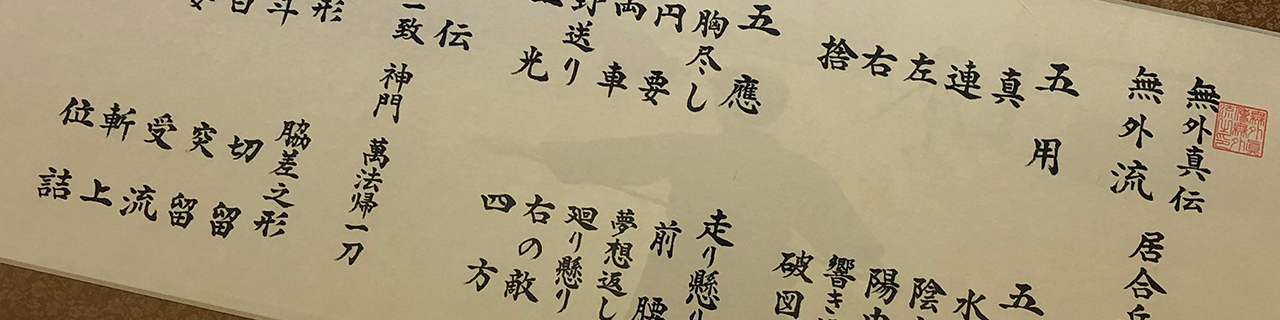 無外真伝
無外流 居合
五用
真
連
左
右
捨
五
水
陰
陽
響き
破図
五應
胸尽し
円要
両車
野送り
光
走り懸り
前腰
夢想返し
廻り懸り
右の敵
四方
伝
一致
神門
萬法帰一刀
形
斗
脇差之形
切留
突留
受流
斬上
位詰